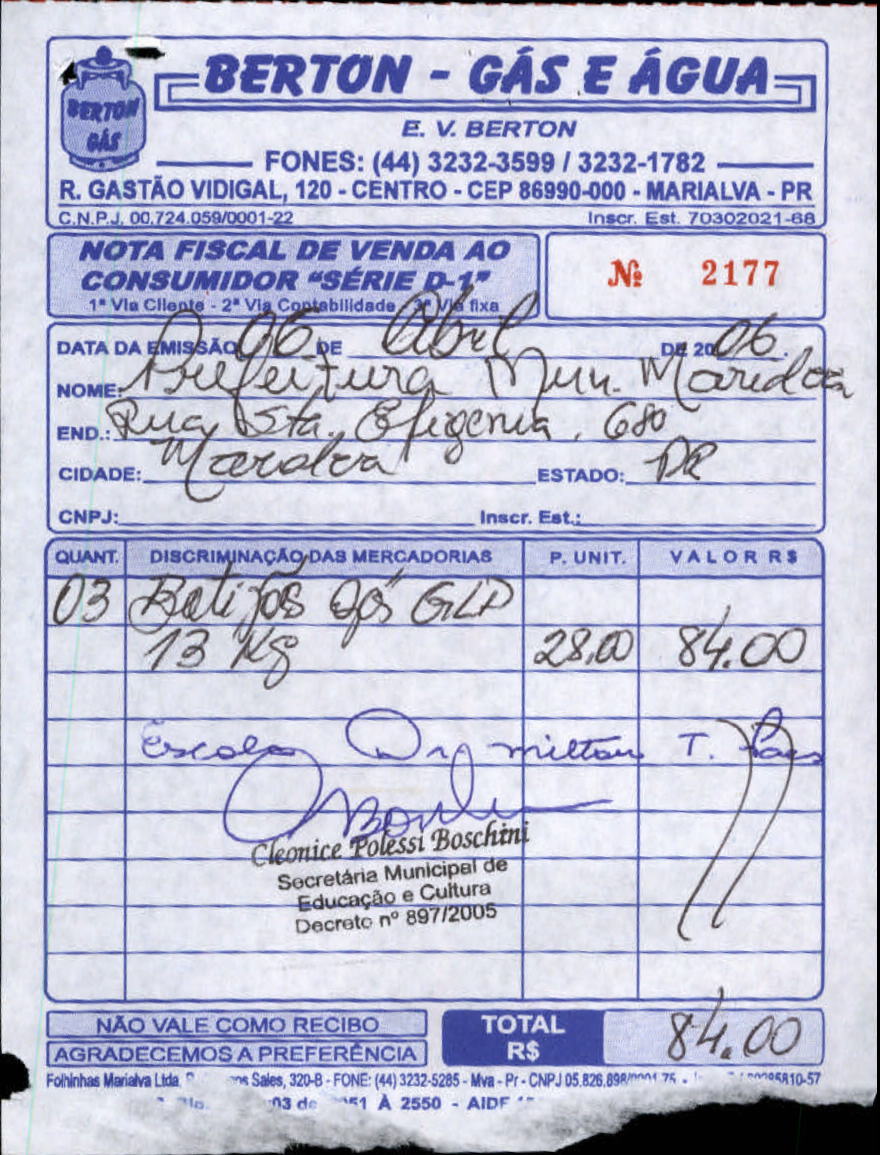 BERTON GÁS
BERTON - GÁS E ÁGUA
E. V. BERTON
FONES: (44) 3232-3599 / 3232-1782
R. GASTÃO VIDIGAL, 120 - CENTRO - CEP 86990-000 - MARIALVA - PR
C.N.P.J. 00.724.059/0001-22 Inscr. Est. 70302021-68
NOTA FISCAL DE VENDA AO
CONSUMIDOR "SÉRIE D-1"
1ª Via Cliente - 2ª Via Contabilidade - 3ª Via fixa
Nº 2177
DATA DA EMISSÃO 06 DE Abril DE 2006.
NOME: Prefeitura Mun. Marialva
END.: Rua Sta. Efigenia, 680
CIDADE: Marialva ESTADO: PR
CNPJ: Inscr. Est.:
QUANT. DISCRIMINAÇÃO DAS MERCADORIAS P. UNIT. VALOR R$
03 Botijãos gás GLP
13 Kg 28,00 84.00
Escola Dr milton T. Paes
Cleonice Polessi Boschini
Secretária Municipal de
Educação e Cultura
Decreto nº 897/2005
NÃO VALE COMO RECIBO
AGRADECEMOS A PREFERÊNCIA
TOTAL R$ 84.00
Folhinhas Marialva Ltda. Sales, 320-B - FONE: (44) 3232-5285 - Mva - Pr - CNPJ 05.826.898/0001-75 -
03 de À 2550 - AIDF